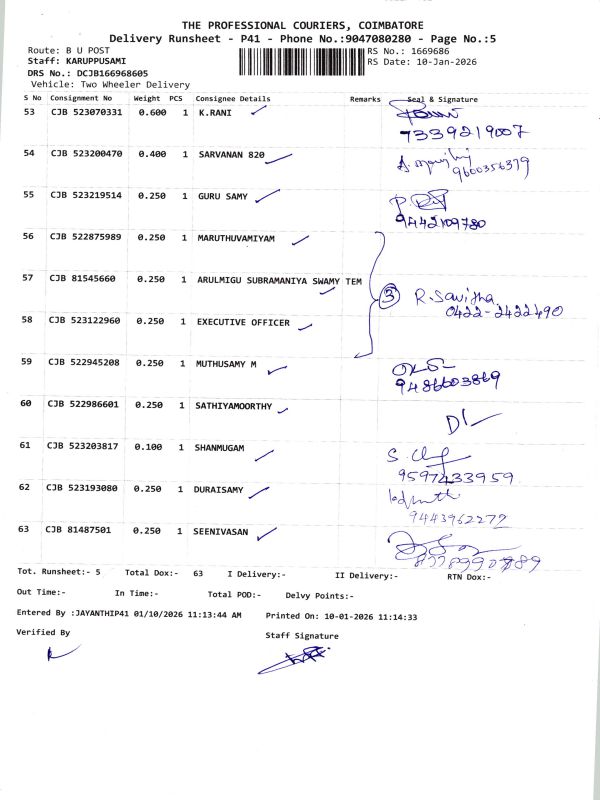 THE PROFESSIONAL COURIERS, COIMBATORE
Delivery Runsheet - P41 - Phone No.:9047080280 - Page No.:5
Route: B U POST RS No.: 1669686
Staff: KARUPPUSAMI RS Date: 10-Jan-2026
DRS No.: DCJB166968605
Vehicle: Two Wheeler Delivery
S No Consignment No Weight PCS Consignee Details Remarks Seal & Signature
53 CJB 523070331 0.600 1 K.RANI
7339219007
54 CJB 523200470 0.400 1 SARVANAN 820
9600356379
55 CJB 523219514 0.250 1 GURU SAMY
9442109780
56 CJB 522875989 0.250 1 MARUTHUVAMIYAM
57 CJB 81545660 0.250 1 ARULMIGU SUBRAMANIYA SWAMY TEM
3 R. Savitha
0422-2422490
58 CJB 523122960 0.250 1 EXECUTIVE OFFICER
59 CJB 522945208 0.250 1 MUTHUSAMY M
9486603869
60 CJB 522986601 0.250 1 SATHIYAMOORTHY
D/
61 CJB 523203817 0.100 1 SHANMUGAM
9597433959
62 CJB 523193080 0.250 1 DURAISAMY
9443962272
63 CJB 81487501 0.250 1 SEENIVASAN
Tot. Runsheet:- 5 Total Dox:- 63 I Delivery:- II Delivery:- RTN Dox:-
Out Time:- In Time:- Total POD:- Delvy Points:-
Entered By :JAYANTHIP41 01/10/2026 11:13:44 AM Printed On: 10-01-2026 11:14:33
Verified By Staff Signature